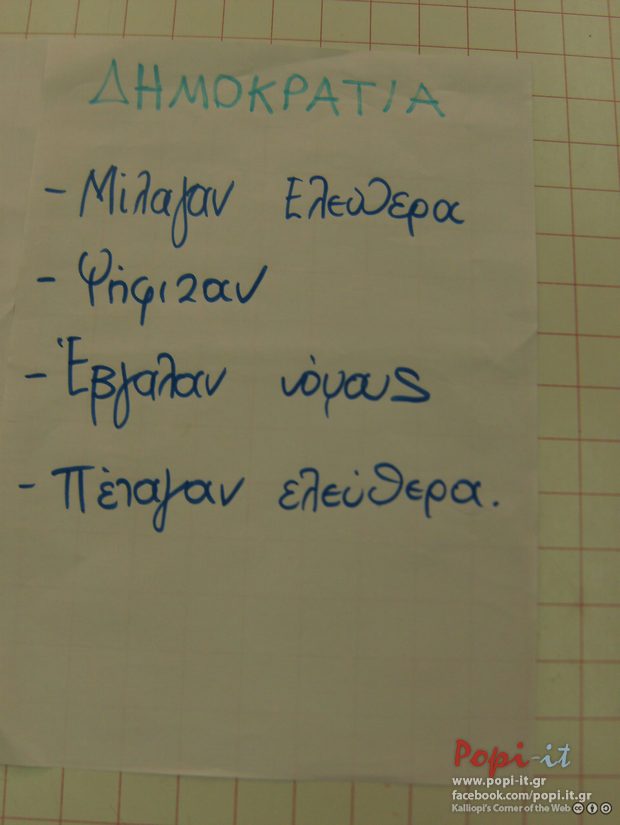 ΔΗΜΟΚΡΑΤΙΑ
- Μίλαγαν Ελεύθερα
- Ψήφιζαν
- Έβγαλαν νόμους
- Πέταγαν ελεύθερα.
Popi-it
www.popi-it.gr
facebook.com/popi.it.gr
Kalliopi's Corner of the Web